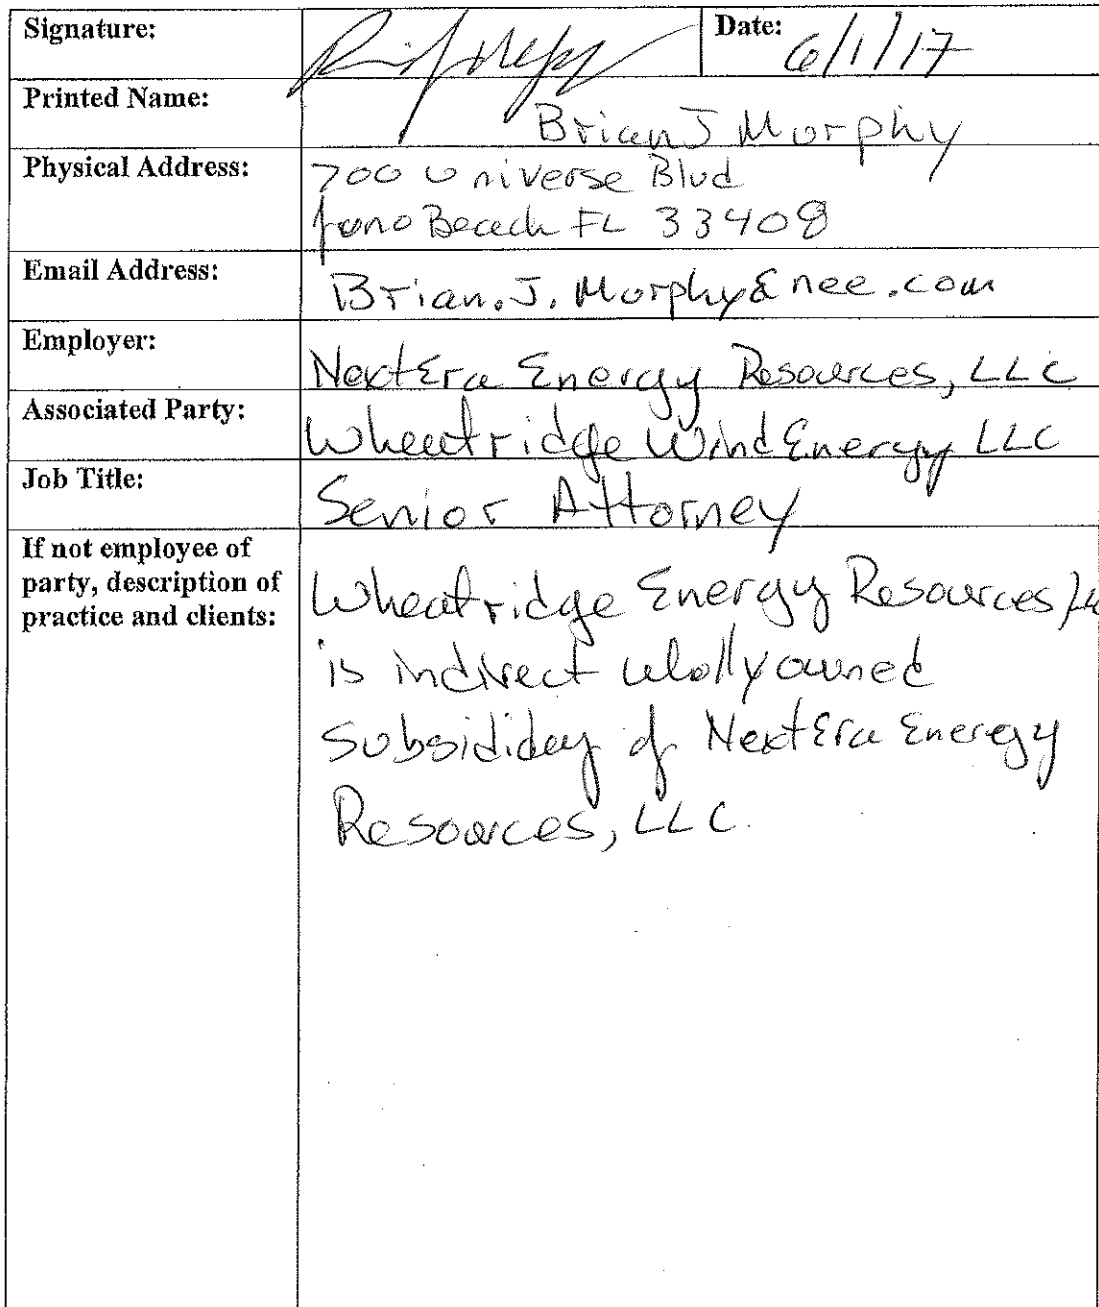 Signature:
Date: 6/1/17
Printed Name: Brian J Morphy
Physical Address: 700 Universe Blvd
Juno Beach FL 33408
Email Address: Brian.J.Morphy@nee.com
Employer: NextEra Energy Resources, LLC
Associated Party: Wheatridge Wind Energy LLC
Job Title: Senior Attorney
If not employee of
party, description of
practice and clients:
Wheatridge Energy Resources, LLC
is indirect wholly owned
Subsididey of NextEra Energy
Resources, LLC.